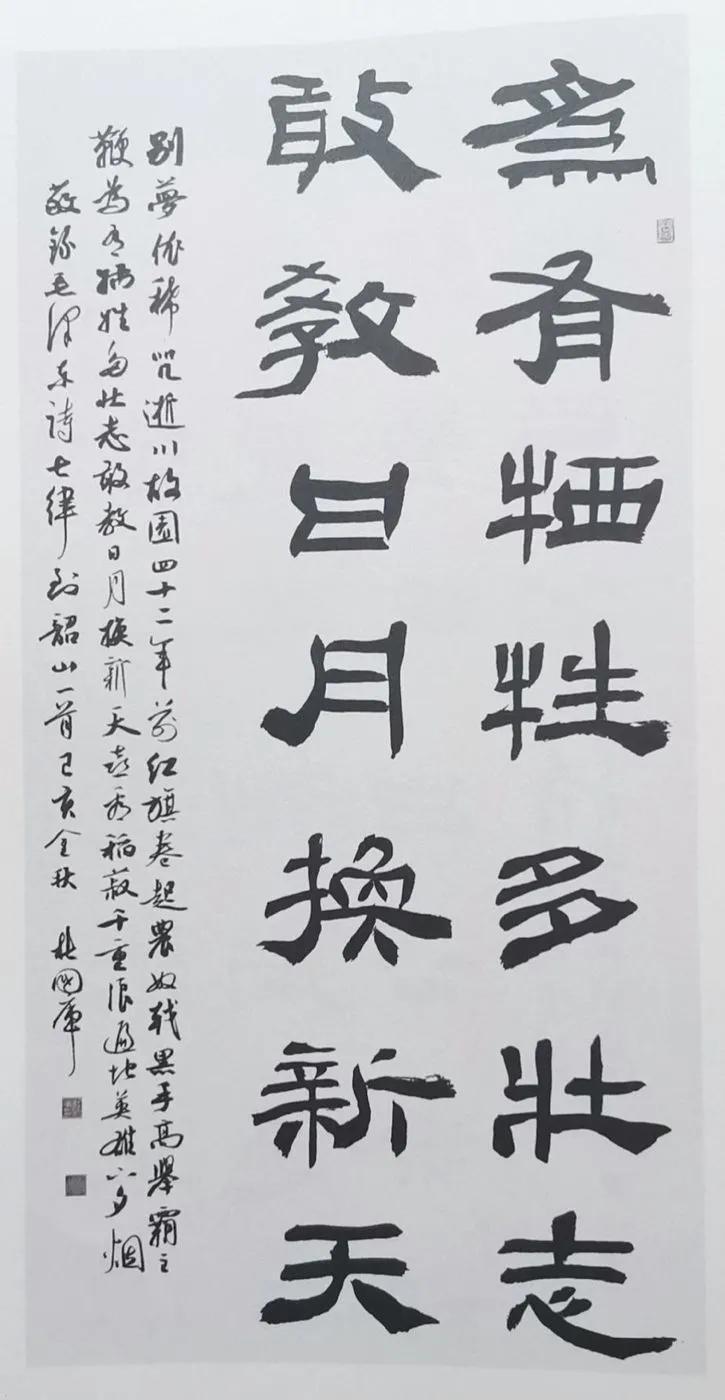 為有牺牲多壯志
敢教日月換新天
别夢依稀咒逝川故園四十二年前红旗卷起農奴戟黑手高舉霸主
鞭為有牺牲多壮志敢教日月換新天喜看稻菽千重浪遍地英雄下夕烟
敬錄毛泽东詩七律到韶山一首己亥金秋 杜國庫